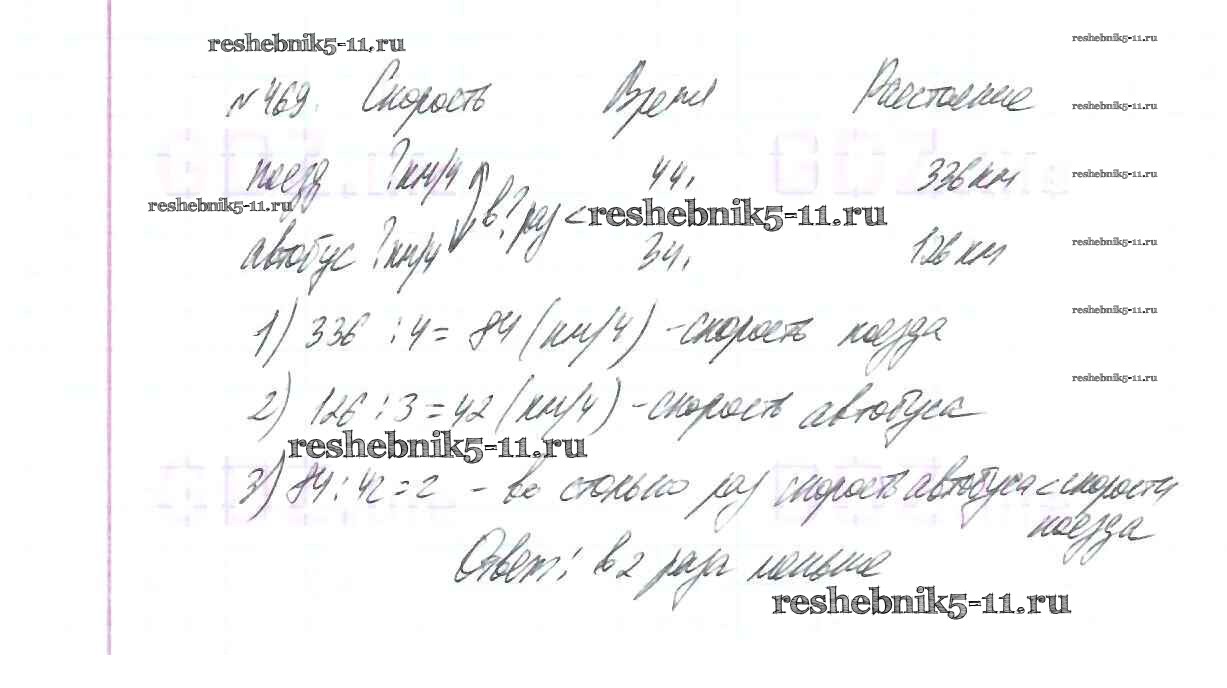 reshebnik5-11.ru
reshebnik5-11.ru
№469. Скорость Время Расстояние
reshebnik5-11.ru
поезд ?км/ч 4ч. 336 км
reshebnik5-11.ru
reshebnik5-11.ru
в ? раз < reshebnik5-11.ru
автобус ?км/ч 3ч. 126 км
reshebnik5-11.ru
reshebnik5-11.ru
1) 336 : 4 = 84 (км/ч) - скорость поезда
reshebnik5-11.ru
2) 126 : 3 = 42 (км/ч) - скорость автобуса
reshebnik5-11.ru
3) 84 : 42 = 2 - во столько раз скорость автобуса < скорости
поезда
Ответ: в 2 раза меньше
reshebnik5-11.ru